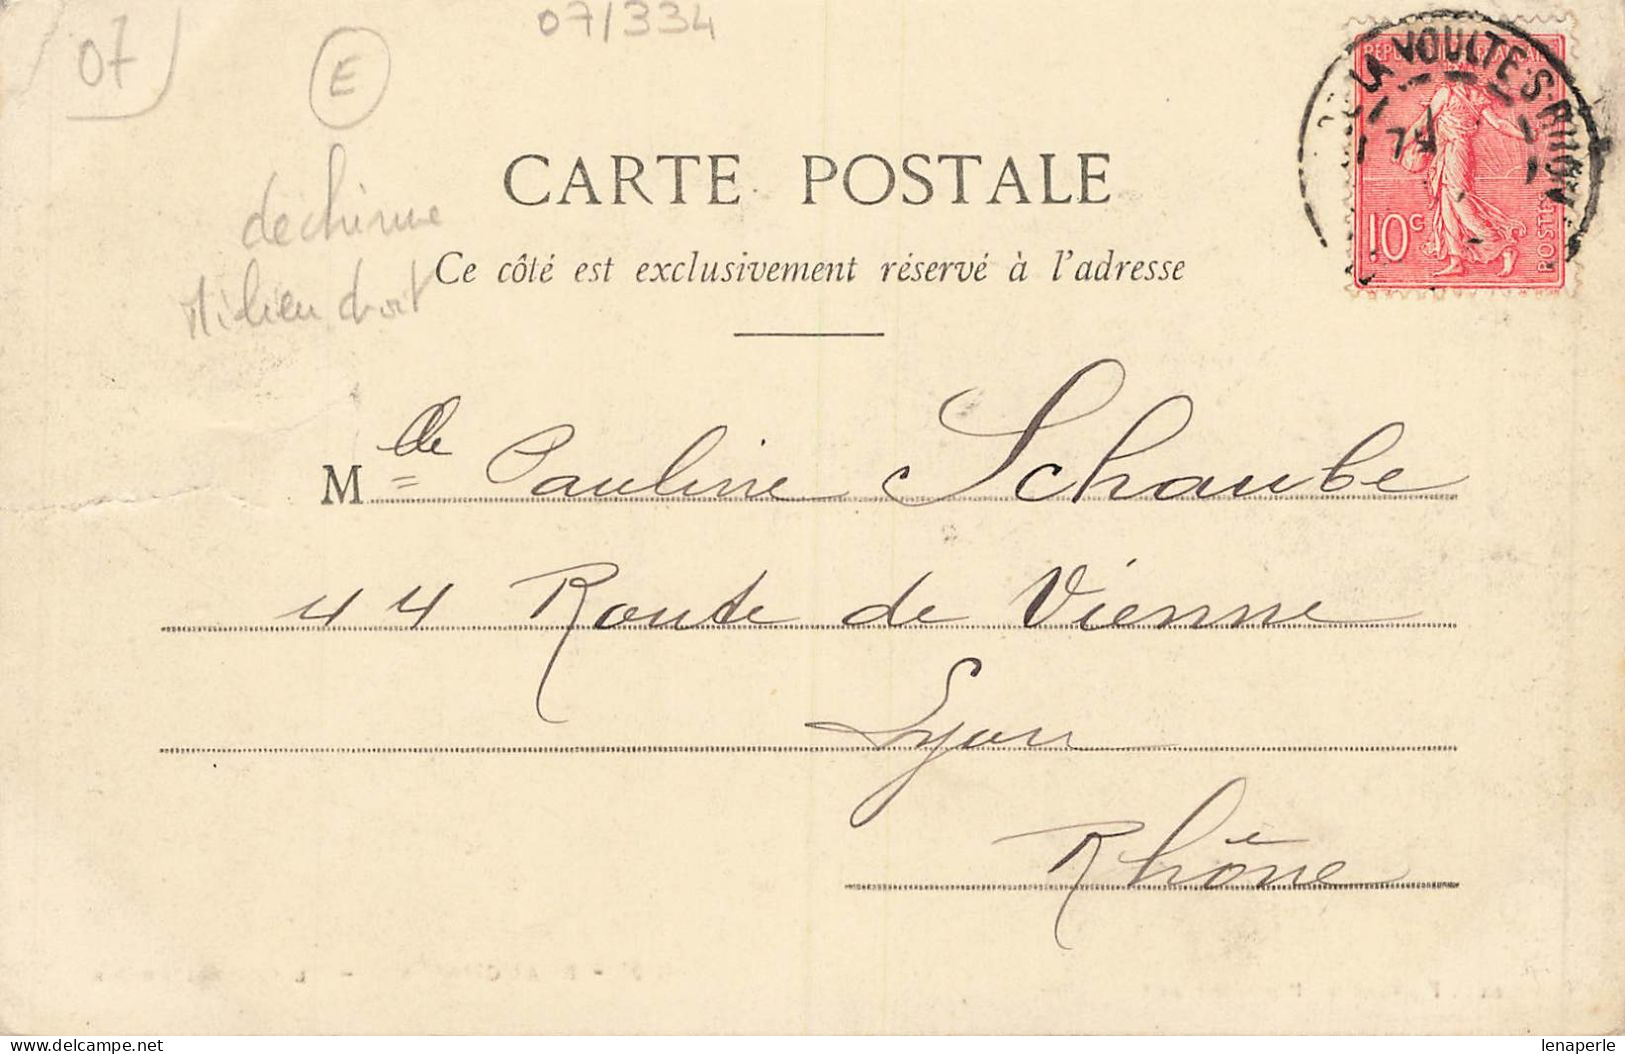 07
E
07/334
LA VOULTE-S-RHÔNE
REPUBLIQUE FRANÇAISE
10c
POSTES
CARTE POSTALE
Ce côté est exclusivement réservé à l'adresse
dechirure
Milieu droit
Mlle Pauline Schaube
44 Route de Vienne
Lyon
Rhône
delcampe.net
lenaperle